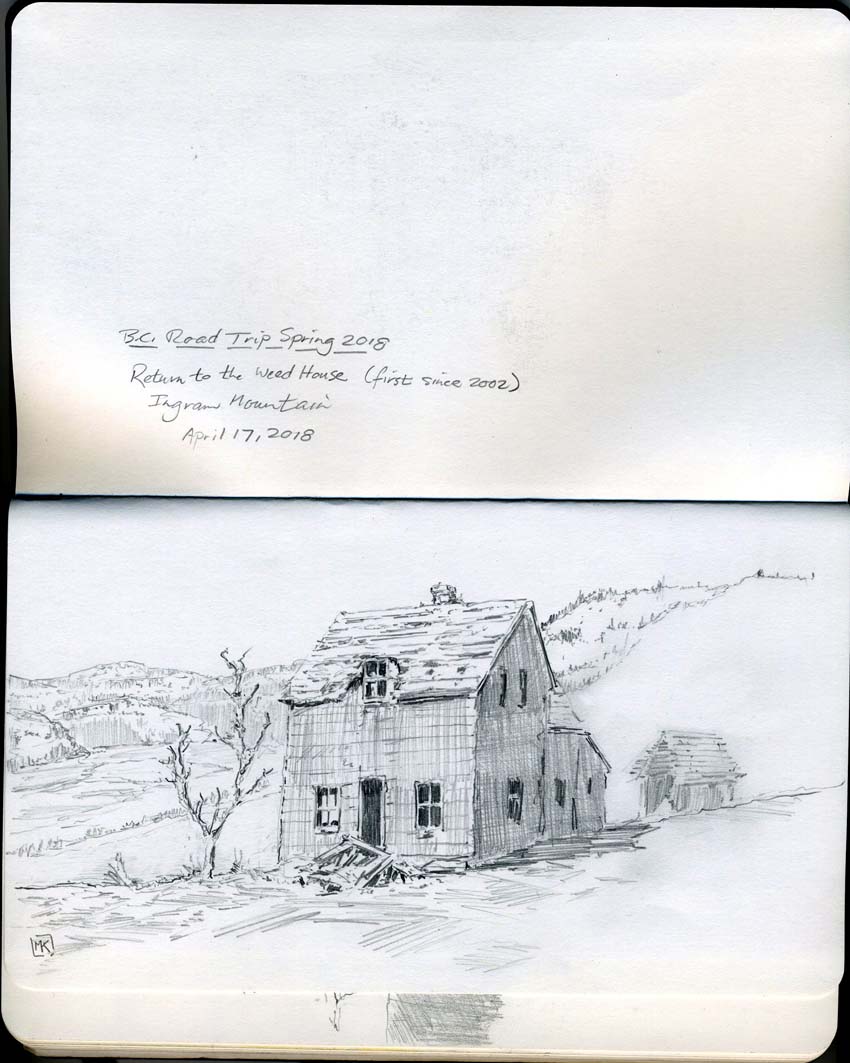 B.C. Road Trip Spring 2018
Return to the Weed House (first since 2002)
Ingram Mountain
April 17, 2018
MK